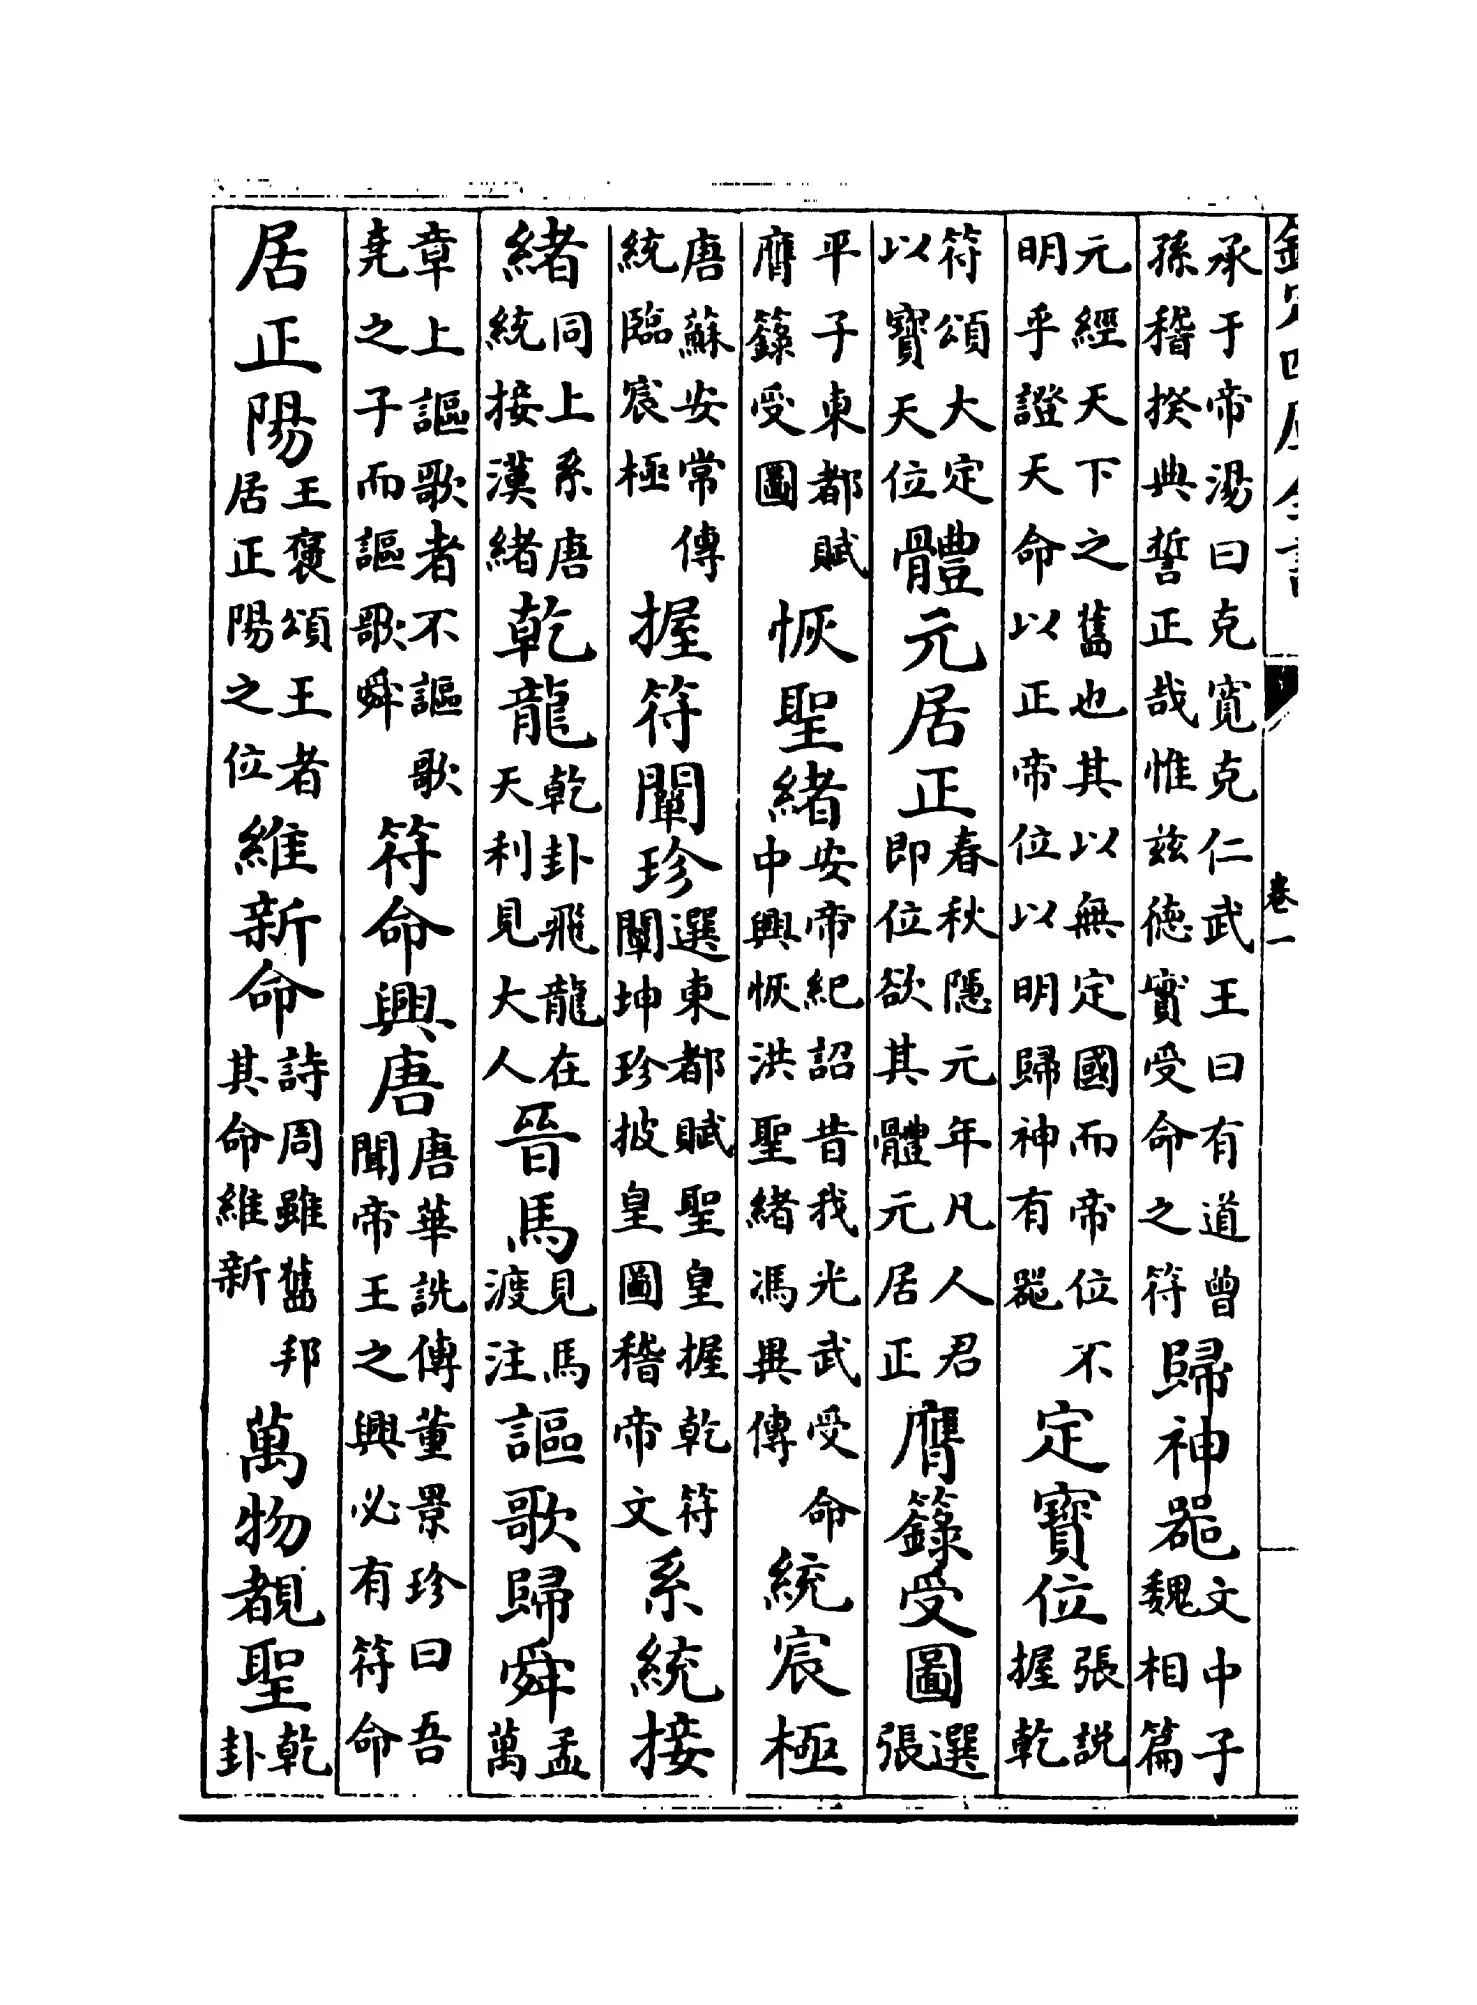 欽定四庫全書
卷一
承于帝湯曰克寛克仁武王曰有道曾
孫稽揆典誓正哉惟兹徳實受命之符
歸神器
文中子
魏相篇
元經天下之舊也其以無定國而帝位不
明乎證天命以正帝位以明歸神有器
定寳位
張説
握乾
符頌大定
以寳天位
體元居正
春秋隱元年凡人君
即位欲其體元居正
膺籙受圖
選
張
平子東都賦
膺籙受圖
恢聖緒
安帝紀詔昔我光武受命
中興恢洪聖緒馮異傳
統宸極
唐蘇安常傳
統臨宸極
握符闡珍
選東都賦聖皇握乾符
闡坤珍披皇圖稽帝文
系統接
緒
同上系唐
統接漢緒
乾龍
乾卦飛龍在
天利見大人
晉馬
見馬
渡注
謳歌歸舜
孟
萬
章上謳歌者不謳歌
堯之子而謳歌舜
符命興唐
唐華詵傳董景珍曰吾
聞帝王之興必有符命
居正陽
王褒頌王者
居正陽之位
維新命
詩周雖舊邦
其命維新
萬物覩聖
乾
卦